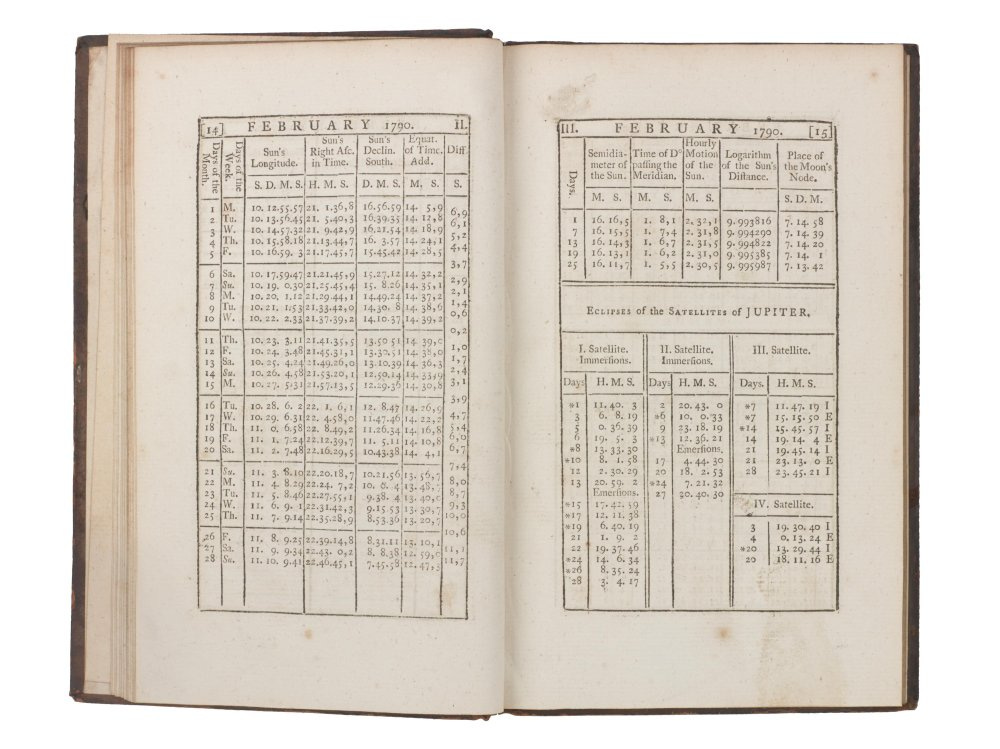 [14] FEBRUARY 1790. II.
Days of the Month. Days of the Week. Sun's Longitude. Sun's Right Asc. in Time. Sun's Declin. South. Equat. of Time. Add. Diff.
S. D. M. S. H. M. S. D. M. S. M. S. S.
1 M. 10. 12.55.57 21. 1.36,8 16.56.59 14. 5,9
6,9
2 Tu. 10. 13.56.45 21. 5.40,3 16.39.35 14. 12,8
6,1
3 W. 10. 14.57.32 21. 9.42,9 16.21.54 14. 18,9
5,2
4 Th. 10. 15.58.18 21.13.44,7 16. 3.57 14. 24,1
4,4
5 F. 10. 16.59. 3 21.17.45,7 15.45.42 14. 28,5
3,7
6 Sa. 10. 17.59.47 21.21.45,9 15.27.12 14. 32,2
2,9
7 Su. 10. 19. 0.30 21.25.45,4 15. 8.26 14. 35,1
2,1
8 M. 10. 20. 1.12 21.29.44,1 14.49.24 14. 37,2
1,4
9 Tu. 10. 21. 1.53 21.33.42,0 14.30. 8 14. 38,6
0,6
10 W. 10. 22. 2.33 21.37.39,2 14.10.37 14. 39,2
0,2
11 Th. 10. 23. 3.11 21.41.35,5 13.50 51 14. 39,0
1,0
12 F. 10. 24. 3.48 21.45.31,1 13.30.51 14. 38,0
1,7
13 Sa. 10. 25. 4.24 21.49.26,0 13.10.39 14. 36,3
2,4
14 Su. 10. 26. 4.58 21.53.20,1 12.50.14 14. 33,9
3,1
15 M. 10. 27. 5.31 21.57.13,5 12.29.36 14. 30,8
3,9
16 Tu. 10. 28. 6. 2 22. 1. 6,1 12. 8.47 14. 26,9
4,7
17 W. 10. 29. 6.31 22. 4.58,0 11.47.46 14. 22,2
5,4
18 Th. 11. 0. 6.58 22. 8.49,2 11.26.34 14. 16,8
6,0
19 F. 11. 1. 7.24 22.12.39,7 11. 5.11 14. 10,8
6,7
20 Sa. 11. 2. 7.48 22.16.29,5 10.43.38 14. 4,1
7,4
21 Su. 11. 3. 8.10 22.20.18,7 10.21.56 13. 56,7
8,0
22 M. 11. 4. 8.29 22.24. 7,2 10. 0. 4 13. 48,7
8,7
23 Tu. 11. 5. 8.46 22.27.55,1 9.38. 4 13. 40,0
9,3
24 W. 11. 6. 9. 1 22.31.42,3 9.15.53 13. 30,7
10,0
25 Th. 11. 7. 9.14 22.35.28,9 8.53.36 13. 20,7
10,6
26 F. 11. 8. 9.25 22.39.14,8 8.31.11 13. 10,1
11,1
27 Sa. 11. 9. 9.34 22.43. 0,2 8. 8.38 12. 59,0
11,7
28 Su. 11. 10. 9.41 22.46.45,1 7.45.58 12. 47,3
III. FEBRUARY 1790. [15]
Days. Semidiameter of the Sun. Time of Do passing the Meridian. Hourly Motion of the Sun. Logarithm of the Sun's Distance. Place of the Moon's Node.
M. S. M. S. M. S. S. D. M.
1 16. 16,5 1. 8,1 2. 32,1 9.993816 7. 14. 58
7 16. 15,5 1. 7,4 2. 31,8 9.994290 7. 14. 39
13 16. 14,3 1. 6,7 2. 31,5 9.994822 7. 14. 20
19 16. 13,1 1. 6,2 2. 31,0 9.995385 7. 14. 1
25 16. 11,7 1. 5,5 2. 30,5 9.995987 7. 13. 42
ECLIPSES of the SATELLITES of JUPITER.
I. Satellite.
Immersions.
Days H. M. S.
*1 11. 40. 3
3 6. 8. 19
5 0. 36. 39
6 19. 5. 3
*8 13. 33. 30
*10 8. 1. 58
12 2. 30. 29
13 20. 59. 2
Emersions.
*15 17. 42. 59
*17 12. 11. 38
*19 6. 40. 19
21 1. 9. 2
22 19. 37. 46
*24 14. 6. 34
*26 8. 35. 24
28 3. 4. 17
II. Satellite.
Immersions.
Days H. M. S.
2 20. 43. 0
*6 10. 0. 33
9 23. 18. 19
*13 12. 36. 21
Emersions.
17 4. 44. 30
20 18. 2. 53
*24 7. 21. 32
27 20. 40. 30
III. Satellite.
Days. H. M. S.
*7 11. 47. 19 I
*7 15. 15. 50 E
*14 15. 45. 57 I
14 19. 14. 4 E
21 19. 45. 14 I
21 23. 13. 0 E
28 23. 45. 21 I
IV. Satellite.
3 19. 30. 40 I
4 0. 13. 24 E
*20 13. 29. 44 I
20 18. 11. 16 E